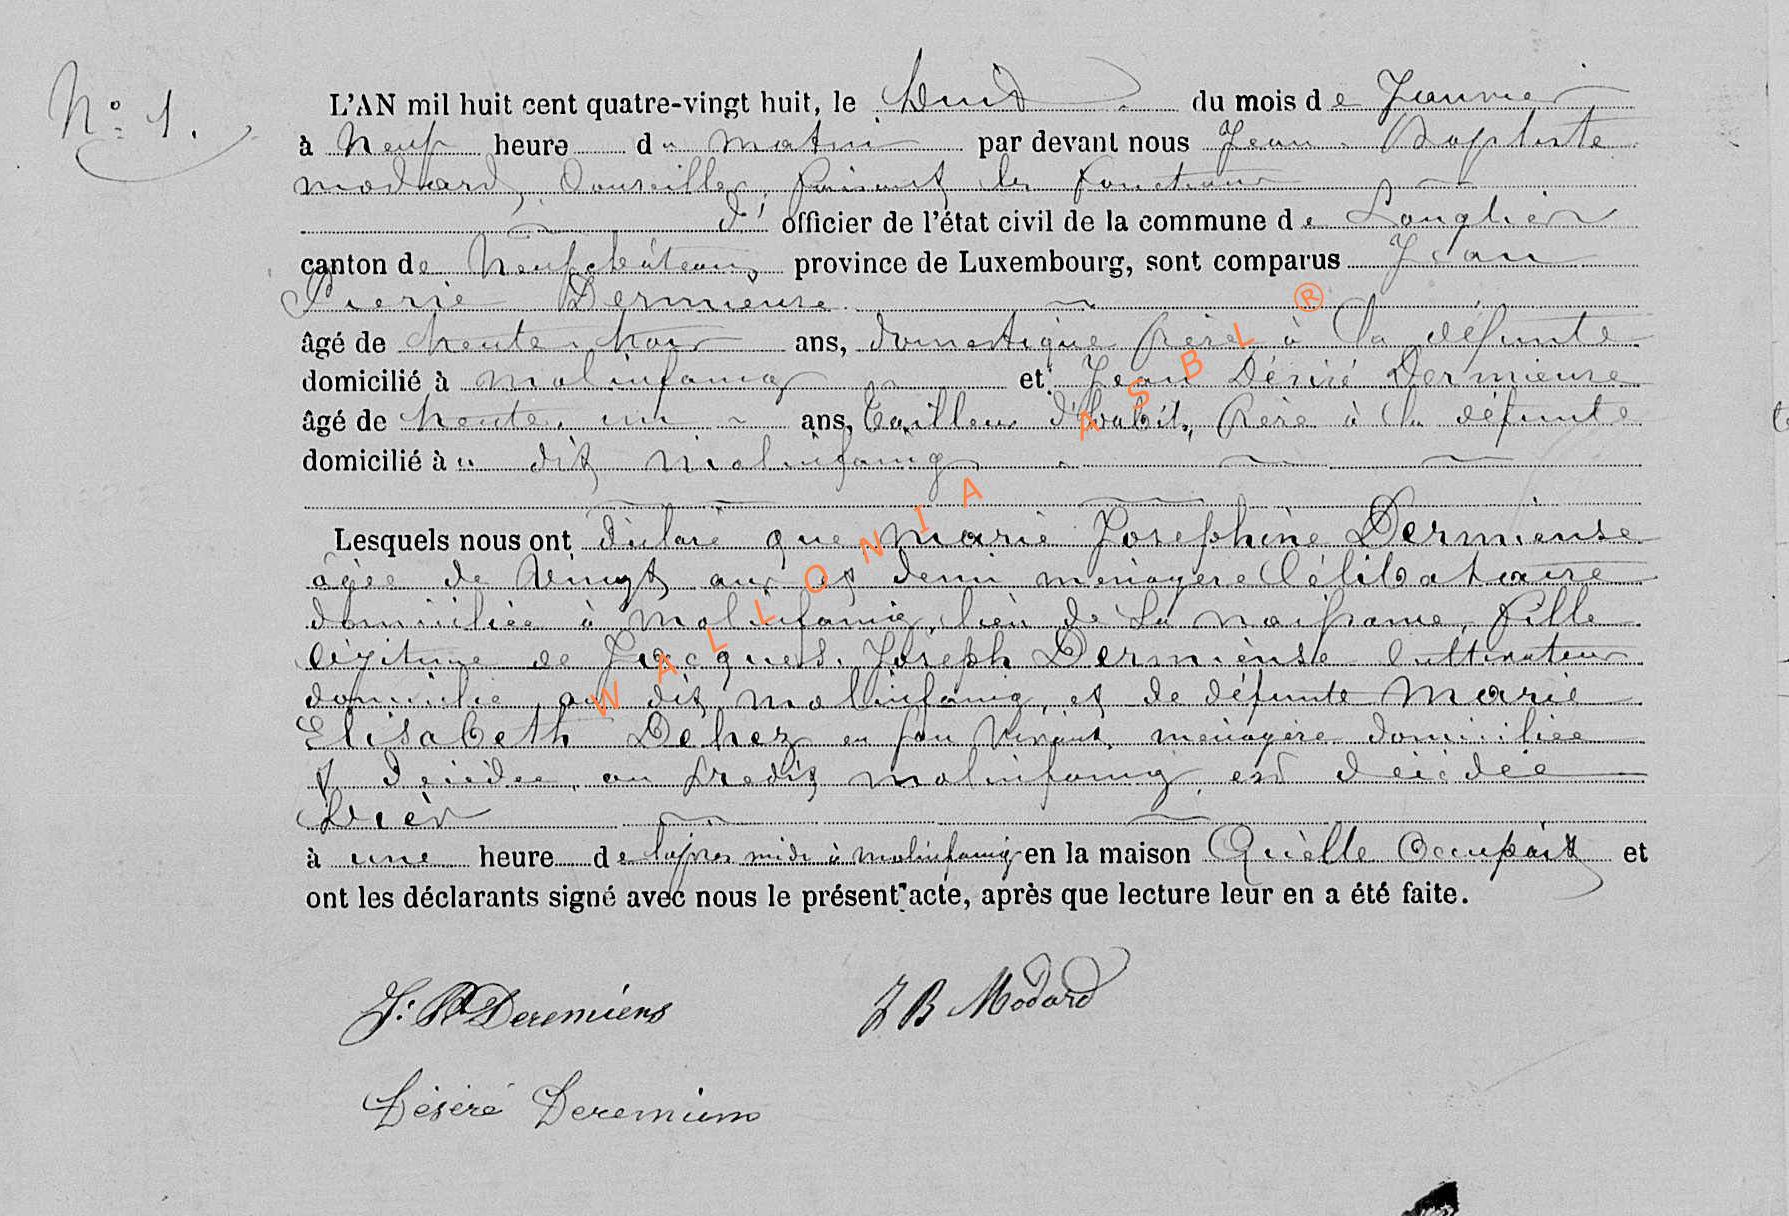 N° 1.
L'AN mil huit cent quatre-vingt huit, le huit du mois de Janvier
à Neuf heure du matin par devant nous Jean Baptiste
modard, Conseiller, faisant les fonctions
d' officier de l'état civil de la commune de Longlier
canton de Neufchâteau, province de Luxembourg, sont comparus Jean
Pierre Dermience
âgé de trente trois ans, domestique frère à la défunte
domicilié à molinfaing et Jean Désiré Dermience
âgé de trente un ans, tailleur d'habits, frère à la défunte
domicilié à u dit molinfaing
Lesquels nous ont déclaré que marie Josephine Dermiense
âgée de vingt ans et demi menagère Célibataire
domiciliée à molinfaing, lieu de sa naissance, fille
légitime de Jacques Joseph Dermiense Cultivateur
domicilié au dit molinfaing, et de défunte Marie
Elisabeth Dehez en son vivant, menagère domiciliée
& décédée au predit molinfaing est décédée
hier
à une heure de l'apres midi à molinfaing en la maison Quèlle Occupait et
ont les déclarants signé avec nous le présent acte, après que lecture leur en a été faite.
J: P Deremiens J B Modard
Déseré Deremiens
WALLONIA ASBL ®